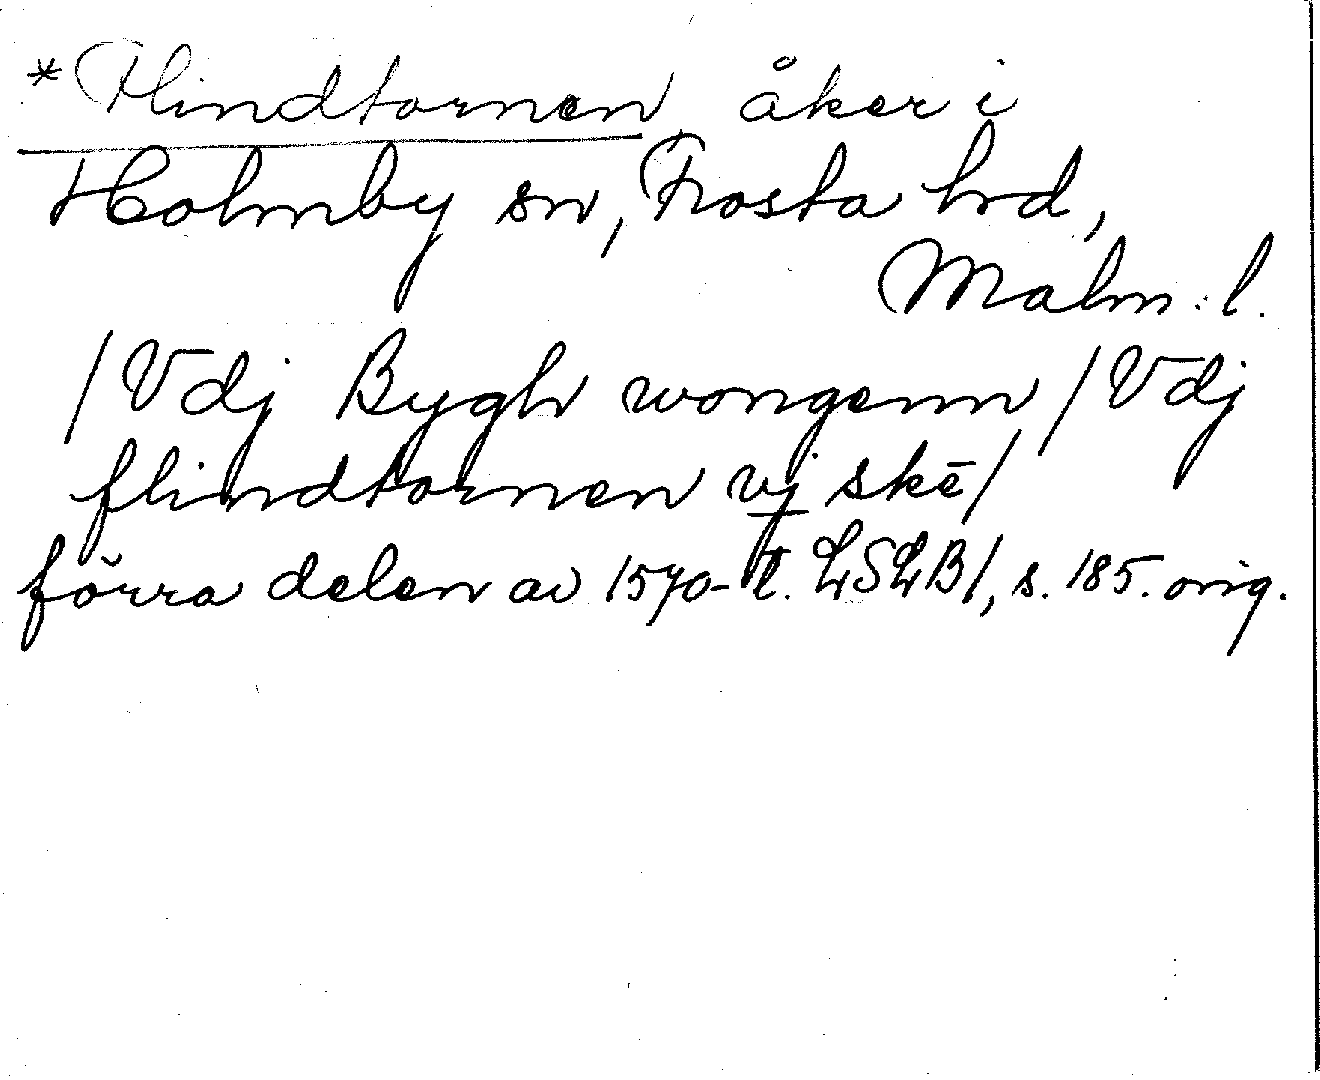 *Flindtornen åker i
Holmby sn, Frosta hrd,
Malm. l.
/Vdj Bygh wongenn/Vdj
flindtornen vj skē/
förra delen av 1570-t. LSLB1, s. 185. orig.